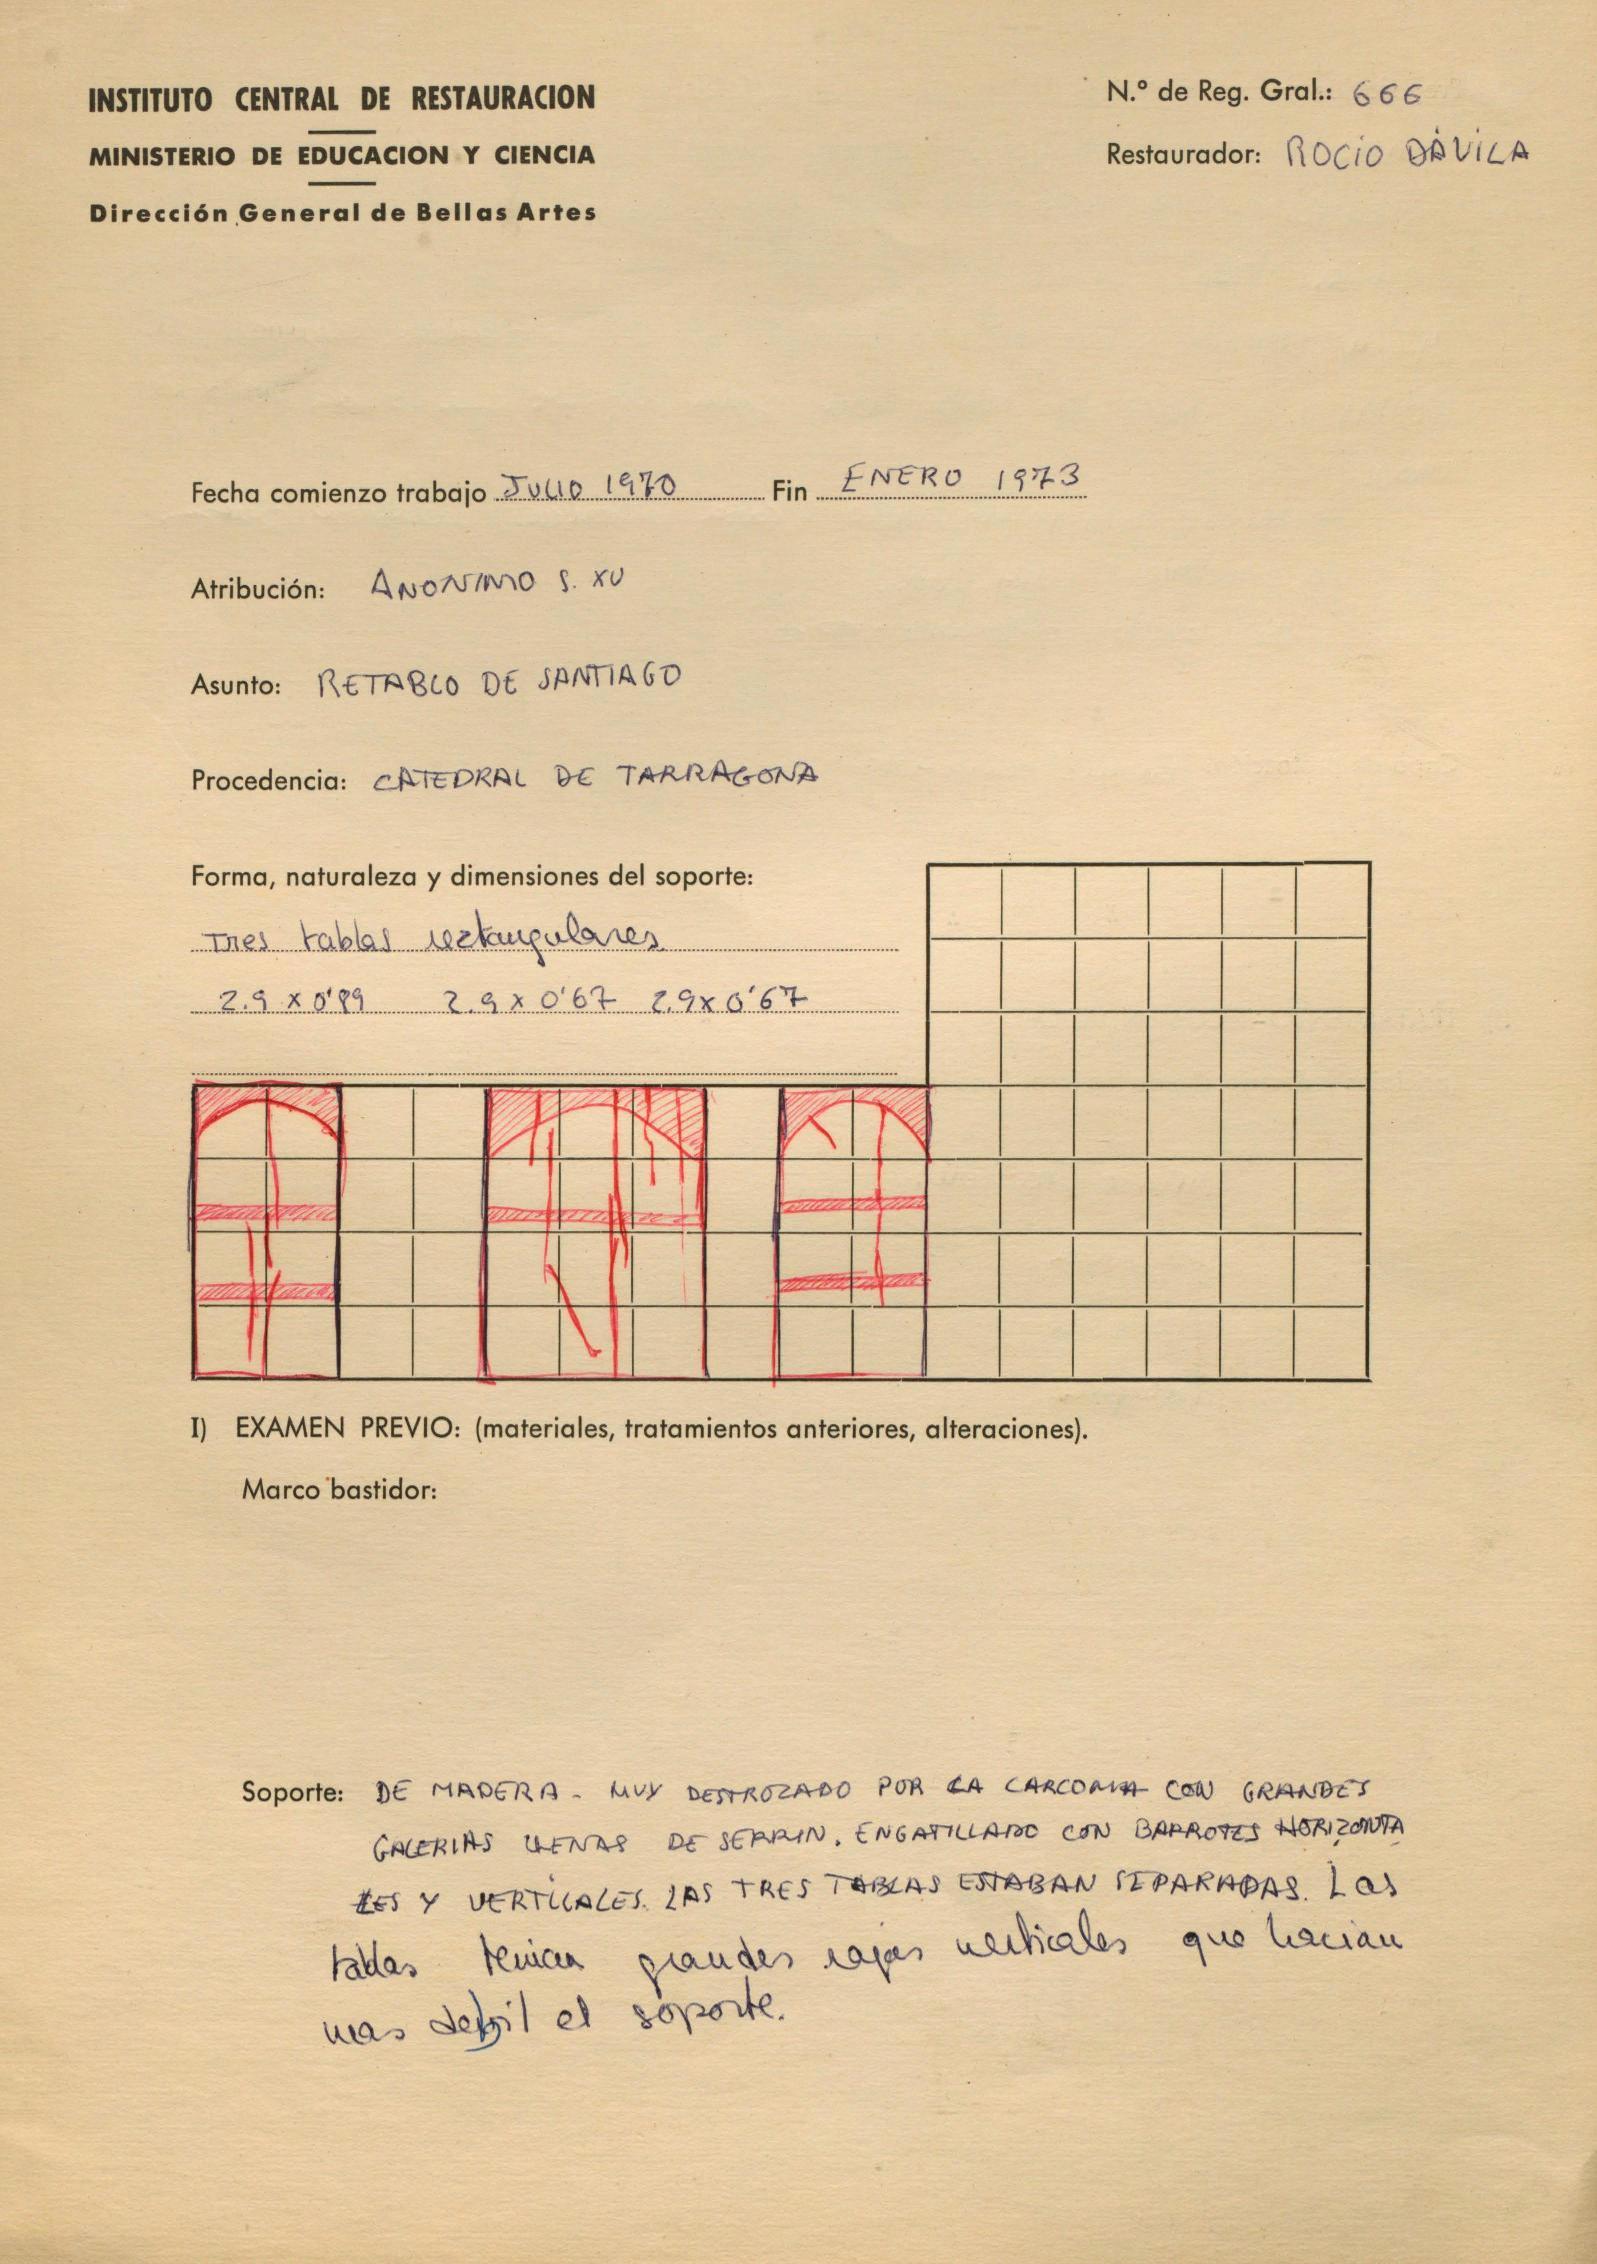 INSTITUTO CENTRAL DE RESTAURACION
MINISTERIO DE EDUCACION Y CIENCIA
Dirección General de Bellas Artes
N.º de Reg. Gral.: 666
Restaurador: ROCIO DÁVILA
Fecha comienzo trabajo JULIO 1970 Fin ENERO 1973
Atribución: ANONIMO S. XV
Asunto: RETABLO DE SANTIAGO
Procedencia: CATEDRAL DE TARRAGONA
Forma, naturaleza y dimensiones del soporte:
Tres tablas rectangulares
2.9 x 0'89 2.9 x 0'67 2.9 x 0'67
I) EXAMEN PREVIO: (materiales, tratamientos anteriores, alteraciones).
Marco bastidor:
Soporte: DE MADERA - MUY DESTROZADO POR LA CARCOMA CON GRANDES
GALERIAS LLENAS DE SERRIN. ENGATILLADO CON BARROTES HORIZONTA
LES Y VERTICALES. LAS TRES TABLAS ESTABAN SEPARADAS. Las
tablas tenian grandes rajas verticales que hacian
mas debil el soporte.